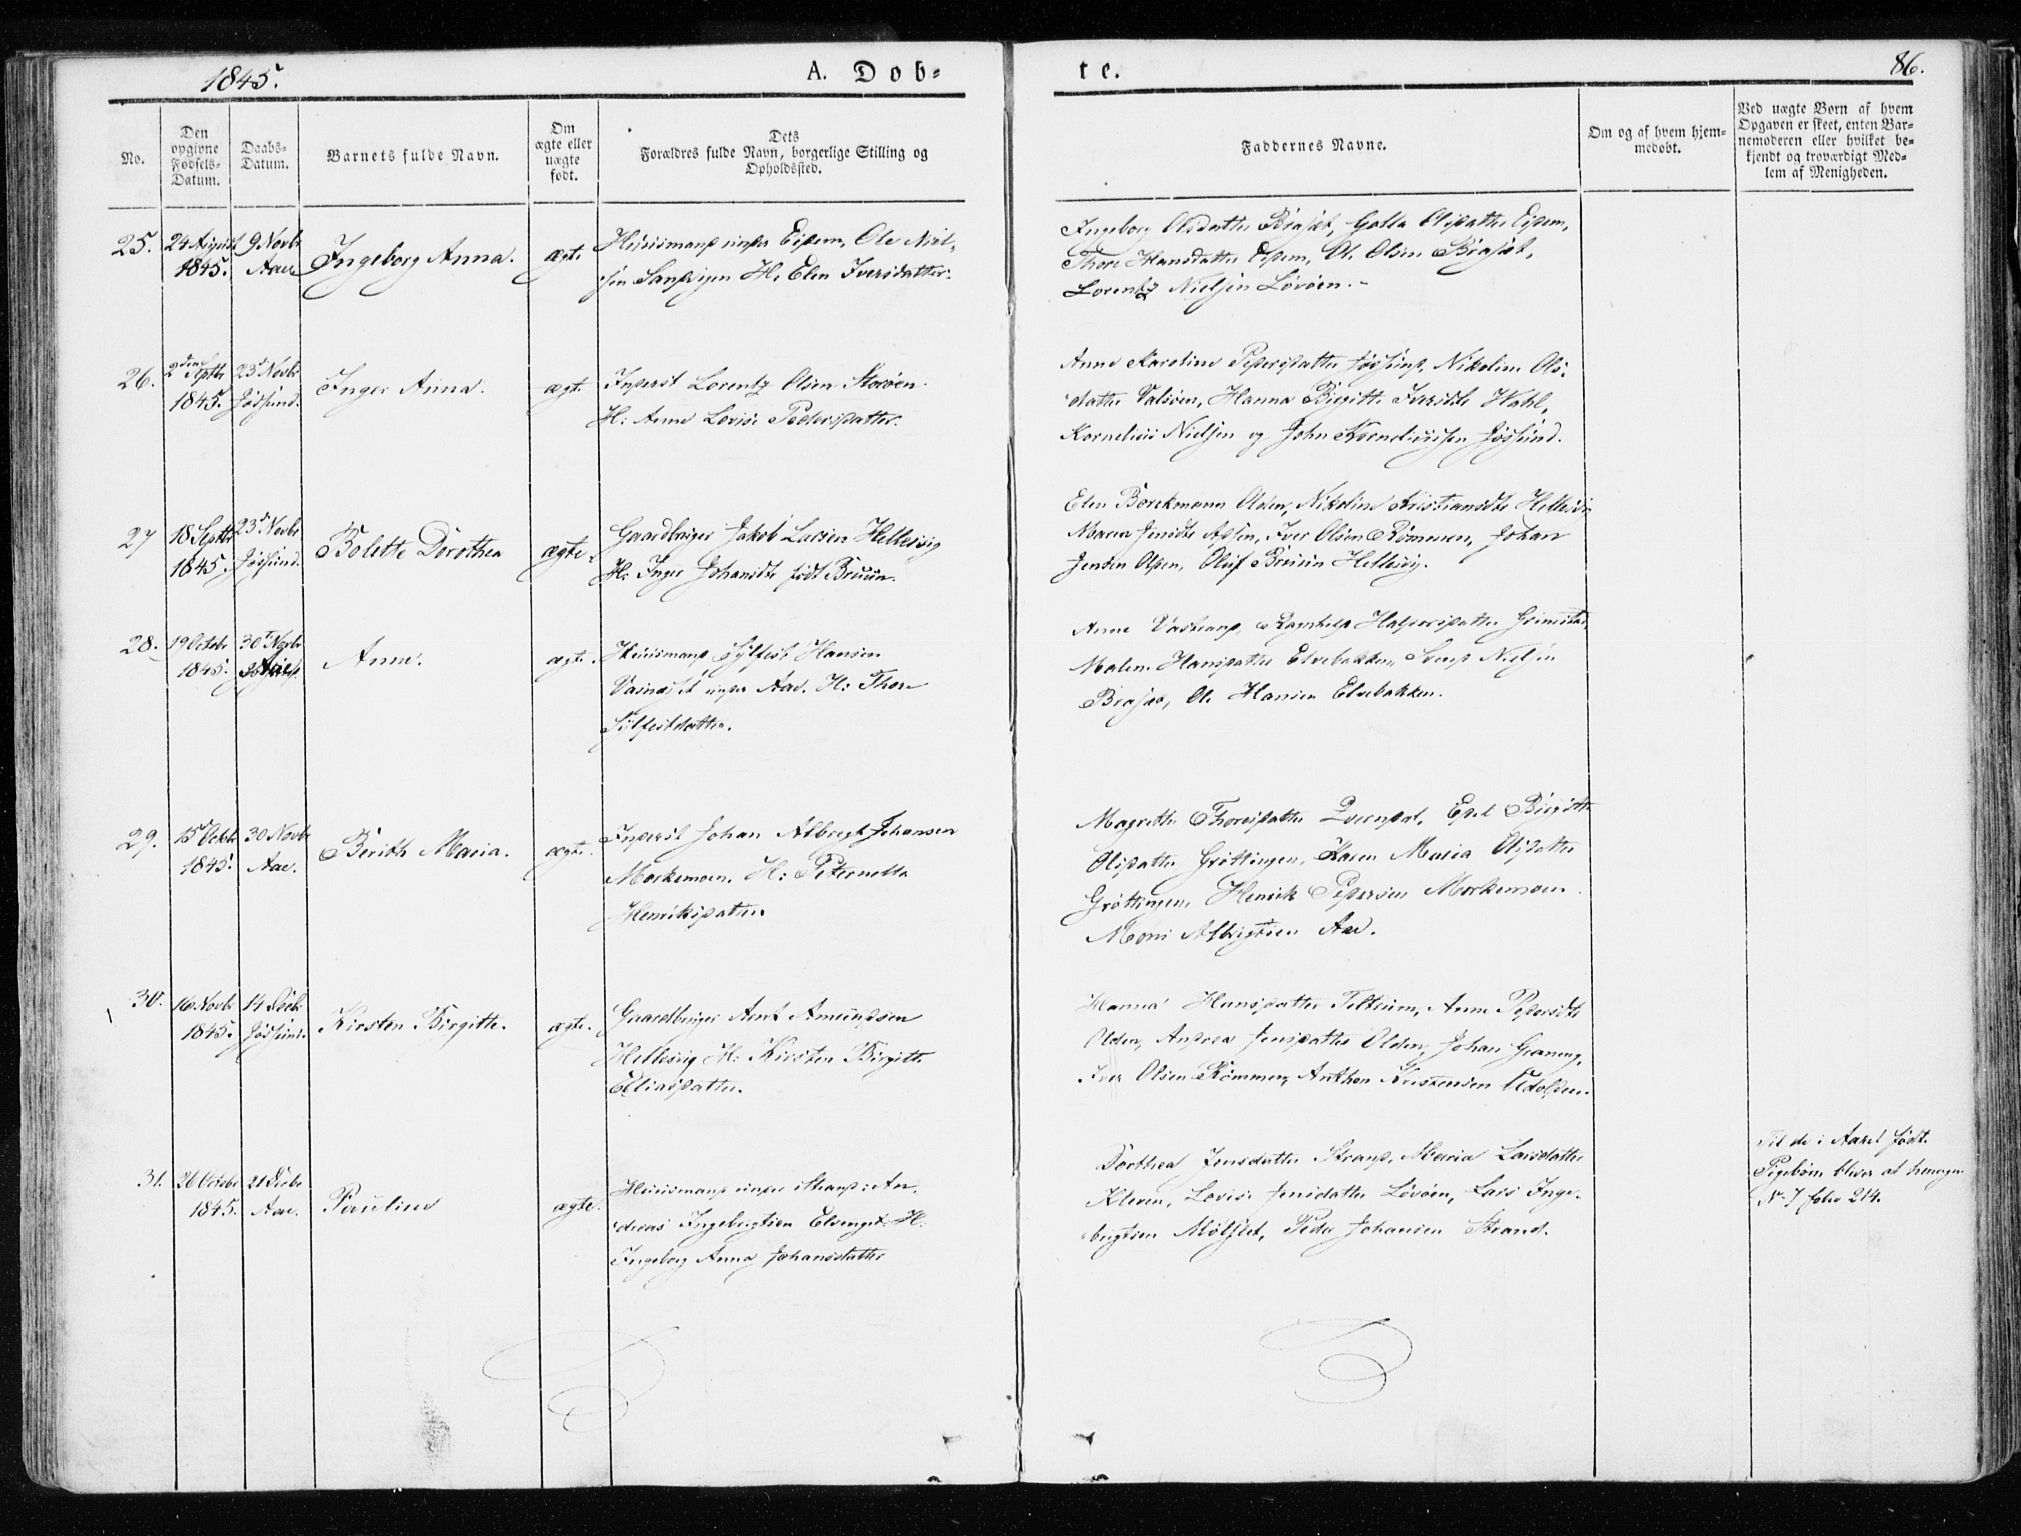 1845.
A. Dob-
te.
86.
No.
Den opgivne Fødsels-Datum.
Daabs-Datum.
Barnets fulde Navn.
Om ægte eller uægte født.
Dets Forældres fulde Navn, borgerlige Stilling og Opholdssted.
Faddernes Navne.
Om og af hvem hjem-medøbt.
Ved uægte Børn af hvem
Opgaven er skeet, enten Bar-
nemoderen eller hvilket be-
kjendt og troværdigt Med-
lem af Menigheden.
25.
24 August
1845.
9 Novbr
Aae
Ingeborg Anna.
ægte
Huusmand under Eidem, Ole Niel-
sen Sandvigen H. Elen Iversdatter.
Ingeborg Olsdatter Braset, Olsdatter Eidem,
Hansdatter Eidem, Ole Olsen Braset,
Lorentz Nielsen Løvøen.
26.
2den Septbr
1845.
23d Novbr
Jøssund.
Inger Anna.
ægte
Inderst Lorentz Olsen Storøen.
H: Anne Lovise Pedersdatter.
Anne Karoline Pedersdatter Jøssund, Nikoline Ols-
datter Valsøen, Hanna Birgitte Iversdtr
Kornelius Nielsen og John Korneliussen Jøssund.
27
18 Septbr
1845.
23d Novbr
Jøssund.
Bolette Dorothea
ægte.
Gaardbruger Jakob Larsen Hellesvig
H: Inger Johansdtr født Bruun.
Elen Borckmann Olden, Nikoline Kristiansdtr Hellesvig
Maren Jensdtr Iver Olsen Rømmen, Johan
Jensen Oluf Bruun Hellesvig.
28.
19 Octobr
1845.
30te Novbr
Aae
Anne.
ægte.
Huusmand Sylfest Hansen
under Aae. H: Thore
Sylfestdatter.
Anne Ragnhild Halvorsdatter Grimstad,
Malen Hansdatter Elvebakken, Svend Nielsen
Ole Hansen Elvebakken.
29.
15 Octobr
1845.
30 Novbr
Aae.
Berith Maria.
ægte.
Inderst Johan Albregt Johansen
Morkemoen. H: Peternella
Henriksdatter.
Magrethe Thoresdatter Birgitte
Olsdatter Grøttingen, Karen Maria Olsdatter
Grøttingen, Henrik Pedersen Morkemoen
Albrigtsen Aae.
30.
16 Novbr
1845.
14 Decbr
Jøssund.
Kirsten Birgitte.
ægte.
Gaardbruger Arnt Amundsen
Hellesvig H: Kirsten Birgitte
Eliasdatter.
Hanna Hansdatter Teltrum, Anne Pedersdtr
Olden, Andrea Jensdatter Olden, Johan Graneng,
Iver Olsen Rømmen, Anthon Kristensen
31.
26 Octobr
1845.
21 Decbr
Aae.
Pauline
ægte.
Huusmand under Strand: An-
dreas Ingebrigtsen Elvenget. H:
Ingeborg Anna Johansdatter
Dorthea Jensdatter Strand, Maria Larsdatter
Kleven, Lovise Jensdatter Løvøen, Lars Inge-
brigtsen Mølslet, Peder Johansen Strand.
Til de i Aaret fødte
Pigebørn bliver at henregne
No 7 folio 214.